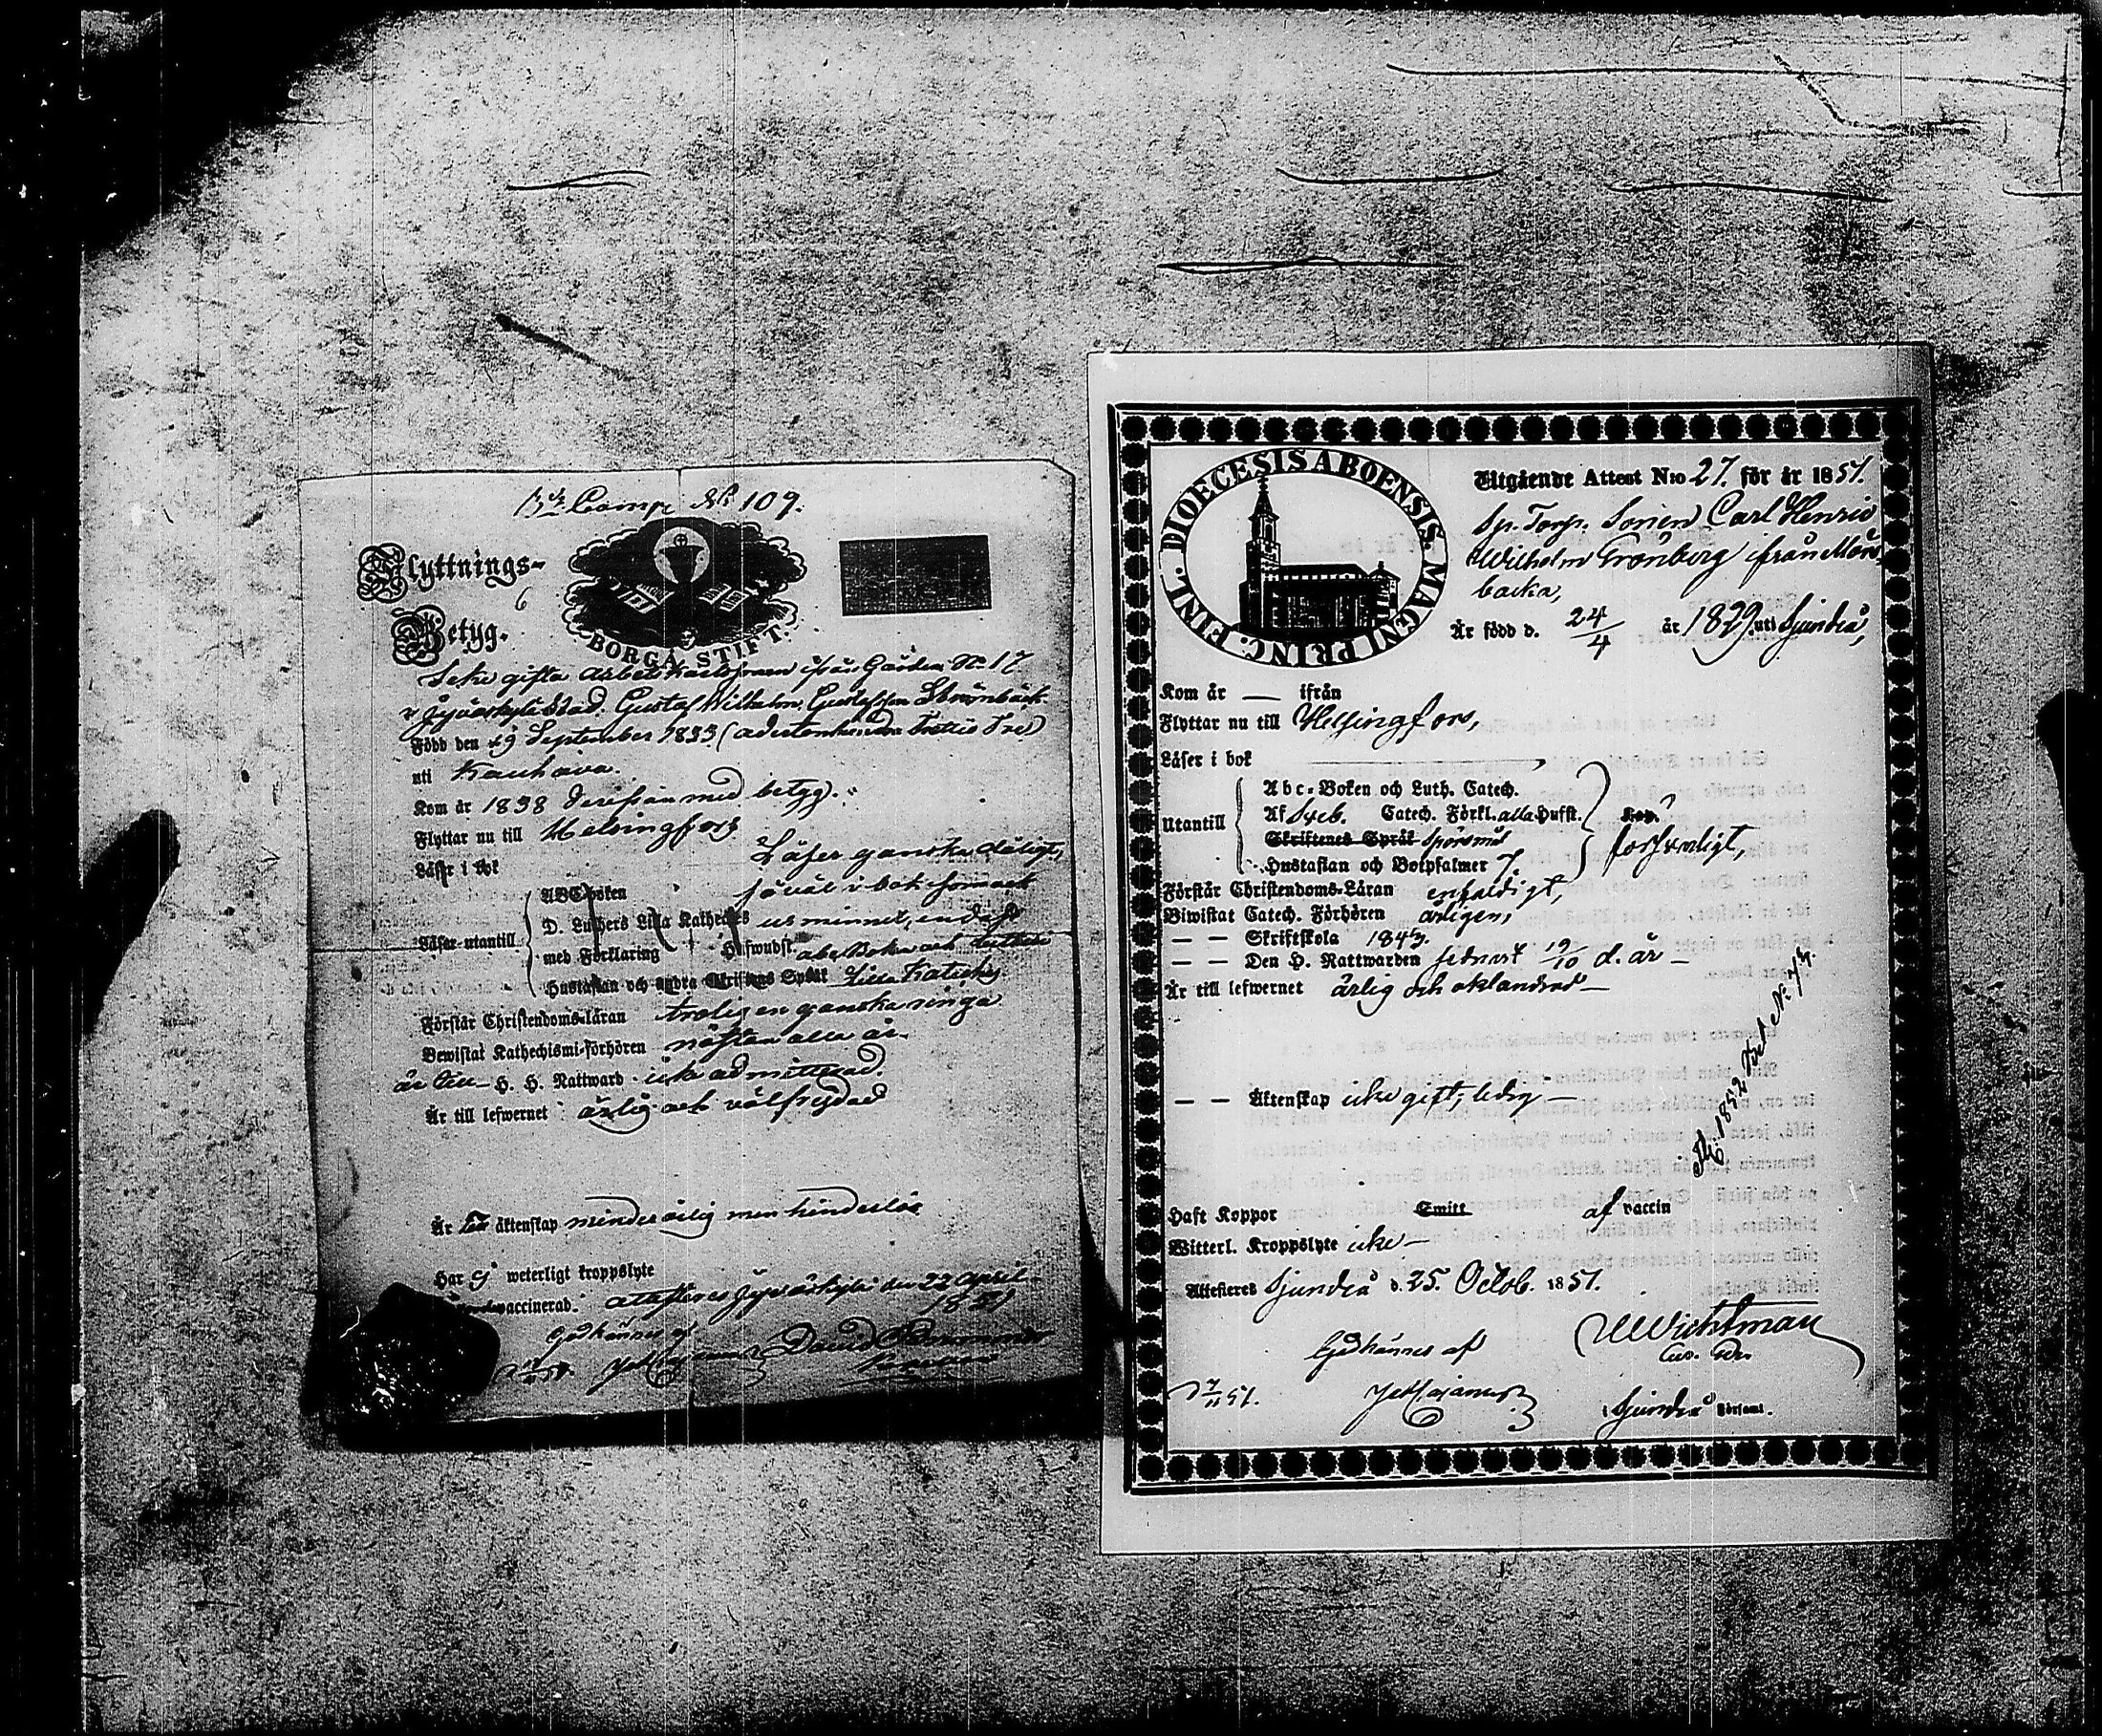 Comp. N° 109.
Flyttnings-
Betyg.
BORGÅ STIFT.
Icke gifta arbets ifrån Gården N° 17
i Jyväskylä stad. Gustaf Wilhelm Gustafsson Strömbäck
Född den 29 September 1833 (adertonhundra trettio Tre)
uti Kauhava.
Kom år 1838 derifrån med betyg.
Flyttar nu till Helsingfors
Läser i bok
Läser ganska dåligt,
ABC-boken såväl i bok som ock
Läser utantill
D. Luthers Lilla Kateches ur minnet, endast
med Förklaring Hufwudst. abc Boken och Lutheri
Hustaflan och andra Skriftens Språk Lilla Kateches
Förstår Christendoms-läran troligen ganska ringa
Bewistat Kathechismi-förhören nästan alla år.
är till H. H. Nattward icke admitterad.
Är till lefwernet ärlig och välfrejdad
Är till äktenskap minderårig men hinderslös
Har ej weterligt kroppslyte
vaccinerad. attesteras Jyväskylä den 22 April
1851
Godkännes af
David
DIOECESIS ABOENSIS. MAGNI PRINC. FINL.
Utgående Attest N:o 27. för år 1851.
Sp. Torp. Sonen Carl Henric
Wilhelm Grönberg ifrån Mårs-
backa,
Är född d. 24/4 år 1829 uti Sjundeå,
Kom år — ifrån
Flyttar nu till Helsingfors,
Läser i bok
Utantill
Abc-Boken och Luth. Catech.
Af Sveb. Catech. Förkl. alla Hufst.
Skriftenes Språk spörsmål
Hustaflan och Botpsalmer 7.
försvarligt,
Förstår Christendoms-Läran enfaldigt,
Biwistat Catech. Förhören årligen,
— — Skriftskola 1843.
— — Den H. Nattwarden sednast 19/10 d. år —
Är till lefwernet ärlig och oklandrad —
— — Äktenskap icke gift, ledig —
Haft Koppor Smitt af vaccin
Witterl. Kroppslyte icke —
Attesteres Sjundeå d. 25. Octob. 1851.
Godkännes af
Wichtman
i Sjundeå Församl.